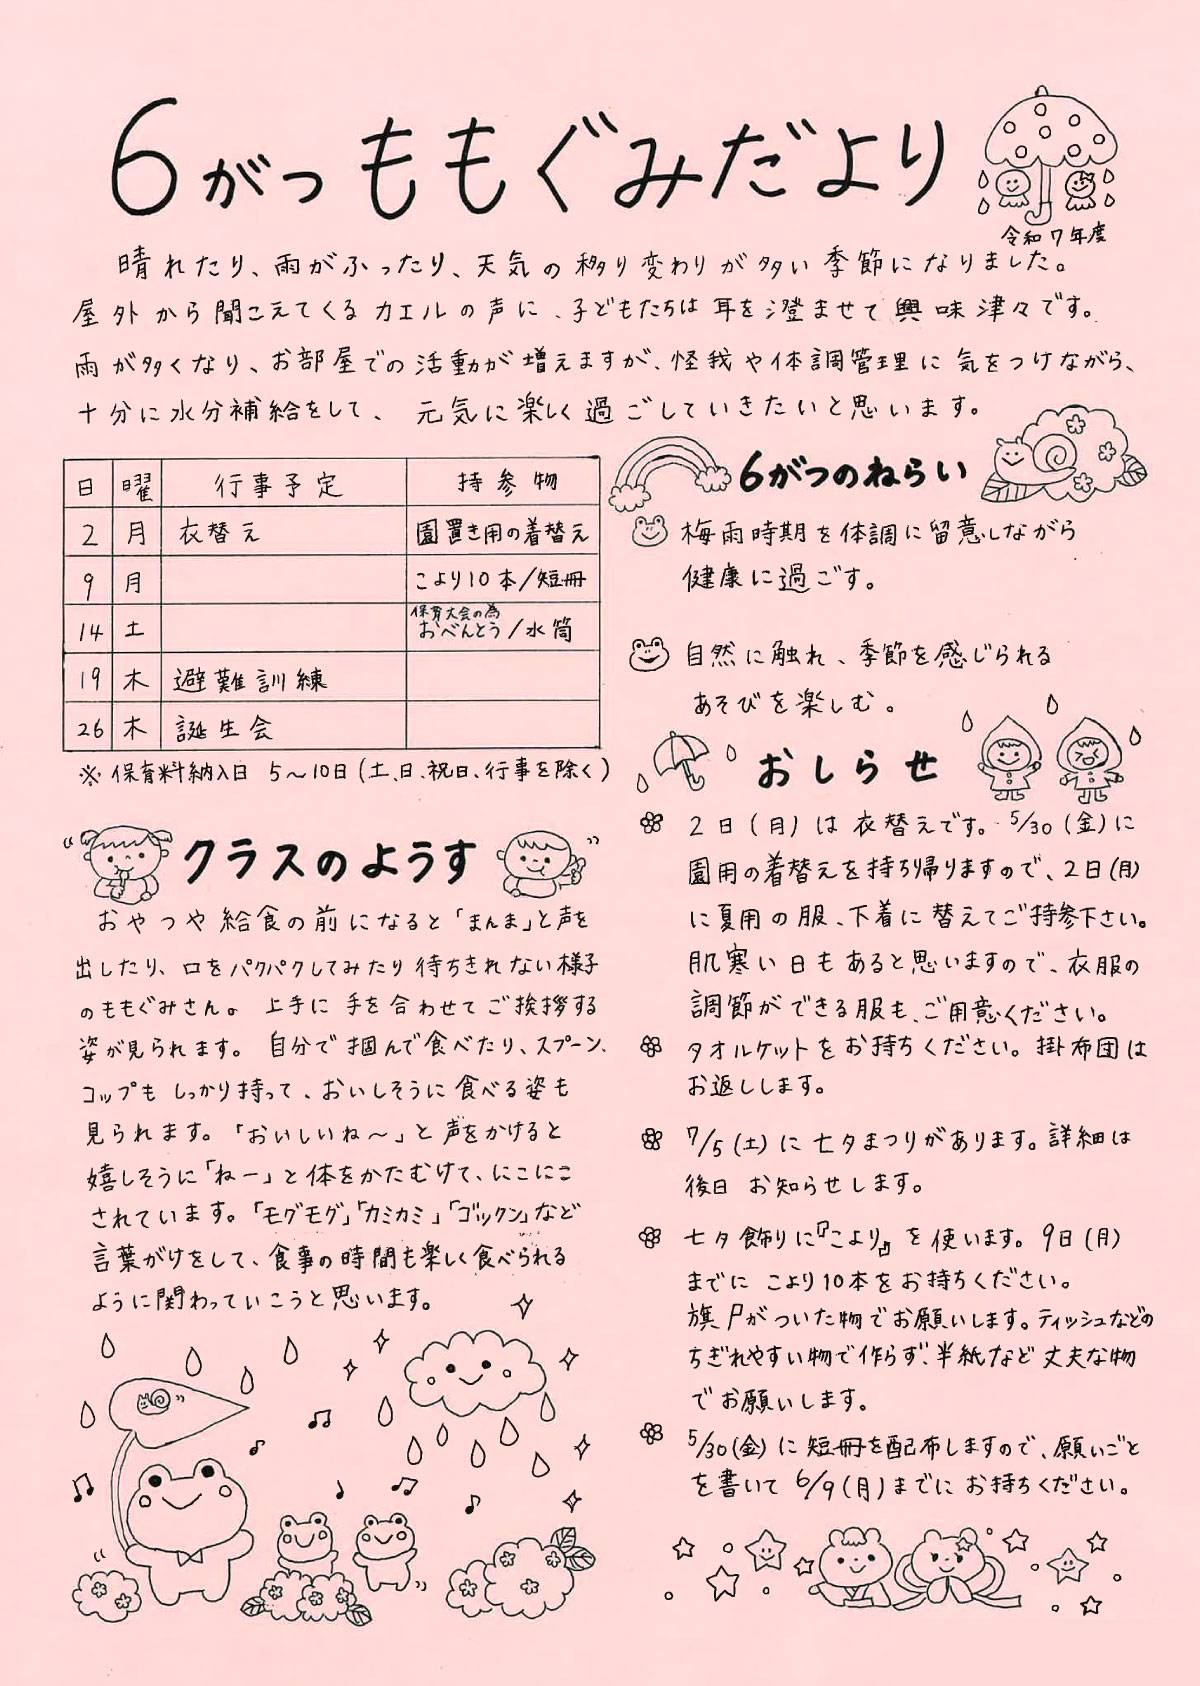 6がつ ももぐみだより
令和7年度
晴れたり、雨がふったり、天気の移り変わりが多い季節になりました。
屋外から聞こえてくるカエルの声に、子どもたちは耳を澄ませて興味津々です。
雨が多くなり、お部屋での活動が増えますが、怪我や体調管理に気をつけながら、
十分に水分補給をして、元気に楽しく過ごしていきたいと思います。
日 曜 行事予定 持参物
2 月 衣替え 園置き用の着替え
9 月 こより10本/短冊
14 土 保育大会の為 おべんとう/水筒
19 木 避難訓練
26 木 誕生会
※ 保育料納入日 5〜10日(土、日、祝日、行事を除く)
クラスのようす
おやつや給食の前になると「まんま」と声を
出したり、口をパクパクしてみたり待ちきれない様子
のももぐみさん。上手に手を合わせてご挨拶する
姿が見られます。自分で掴んで食べたり、スプーン、
コップもしっかり持って、おいしそうに食べる姿も
見られます。「おいしいね〜」と声をかけると
嬉しそうに「ねー」と体をかたむけて、にこにこ
されています。「モグモグ」「カミカミ」「ゴックン」など
言葉がけをして、食事の時間も楽しく食べられる
ように関わっていこうと思います。
6がつのねらい
梅雨時期を体調に留意しながら
健康に過ごす。
自然に触れ、季節を感じられる
あそびを楽しむ。
おしらせ
2日(月)は衣替えです。5/30(金)に
園用の着替えを持ち帰りますので、2日(月)
に夏用の服、下着に替えてご持参下さい。
肌寒い日もあると思いますので、衣服の
調節ができる服も、ご用意ください。
タオルケットをお持ちください。掛布団は
お返しします。
7/5(土)に七夕まつりがあります。詳細は
後日お知らせします。
七夕飾りに『こより』を使います。9日(月)
までにこより10本をお持ちください。
旗がついた物でお願いします。ティッシュなどの
ちぎれやすい物で作らず、半紙など丈夫な物
でお願いします。
5/30(金)に短冊を配布しますので、願いごと
を書いて6/9(月)までにお持ちください。